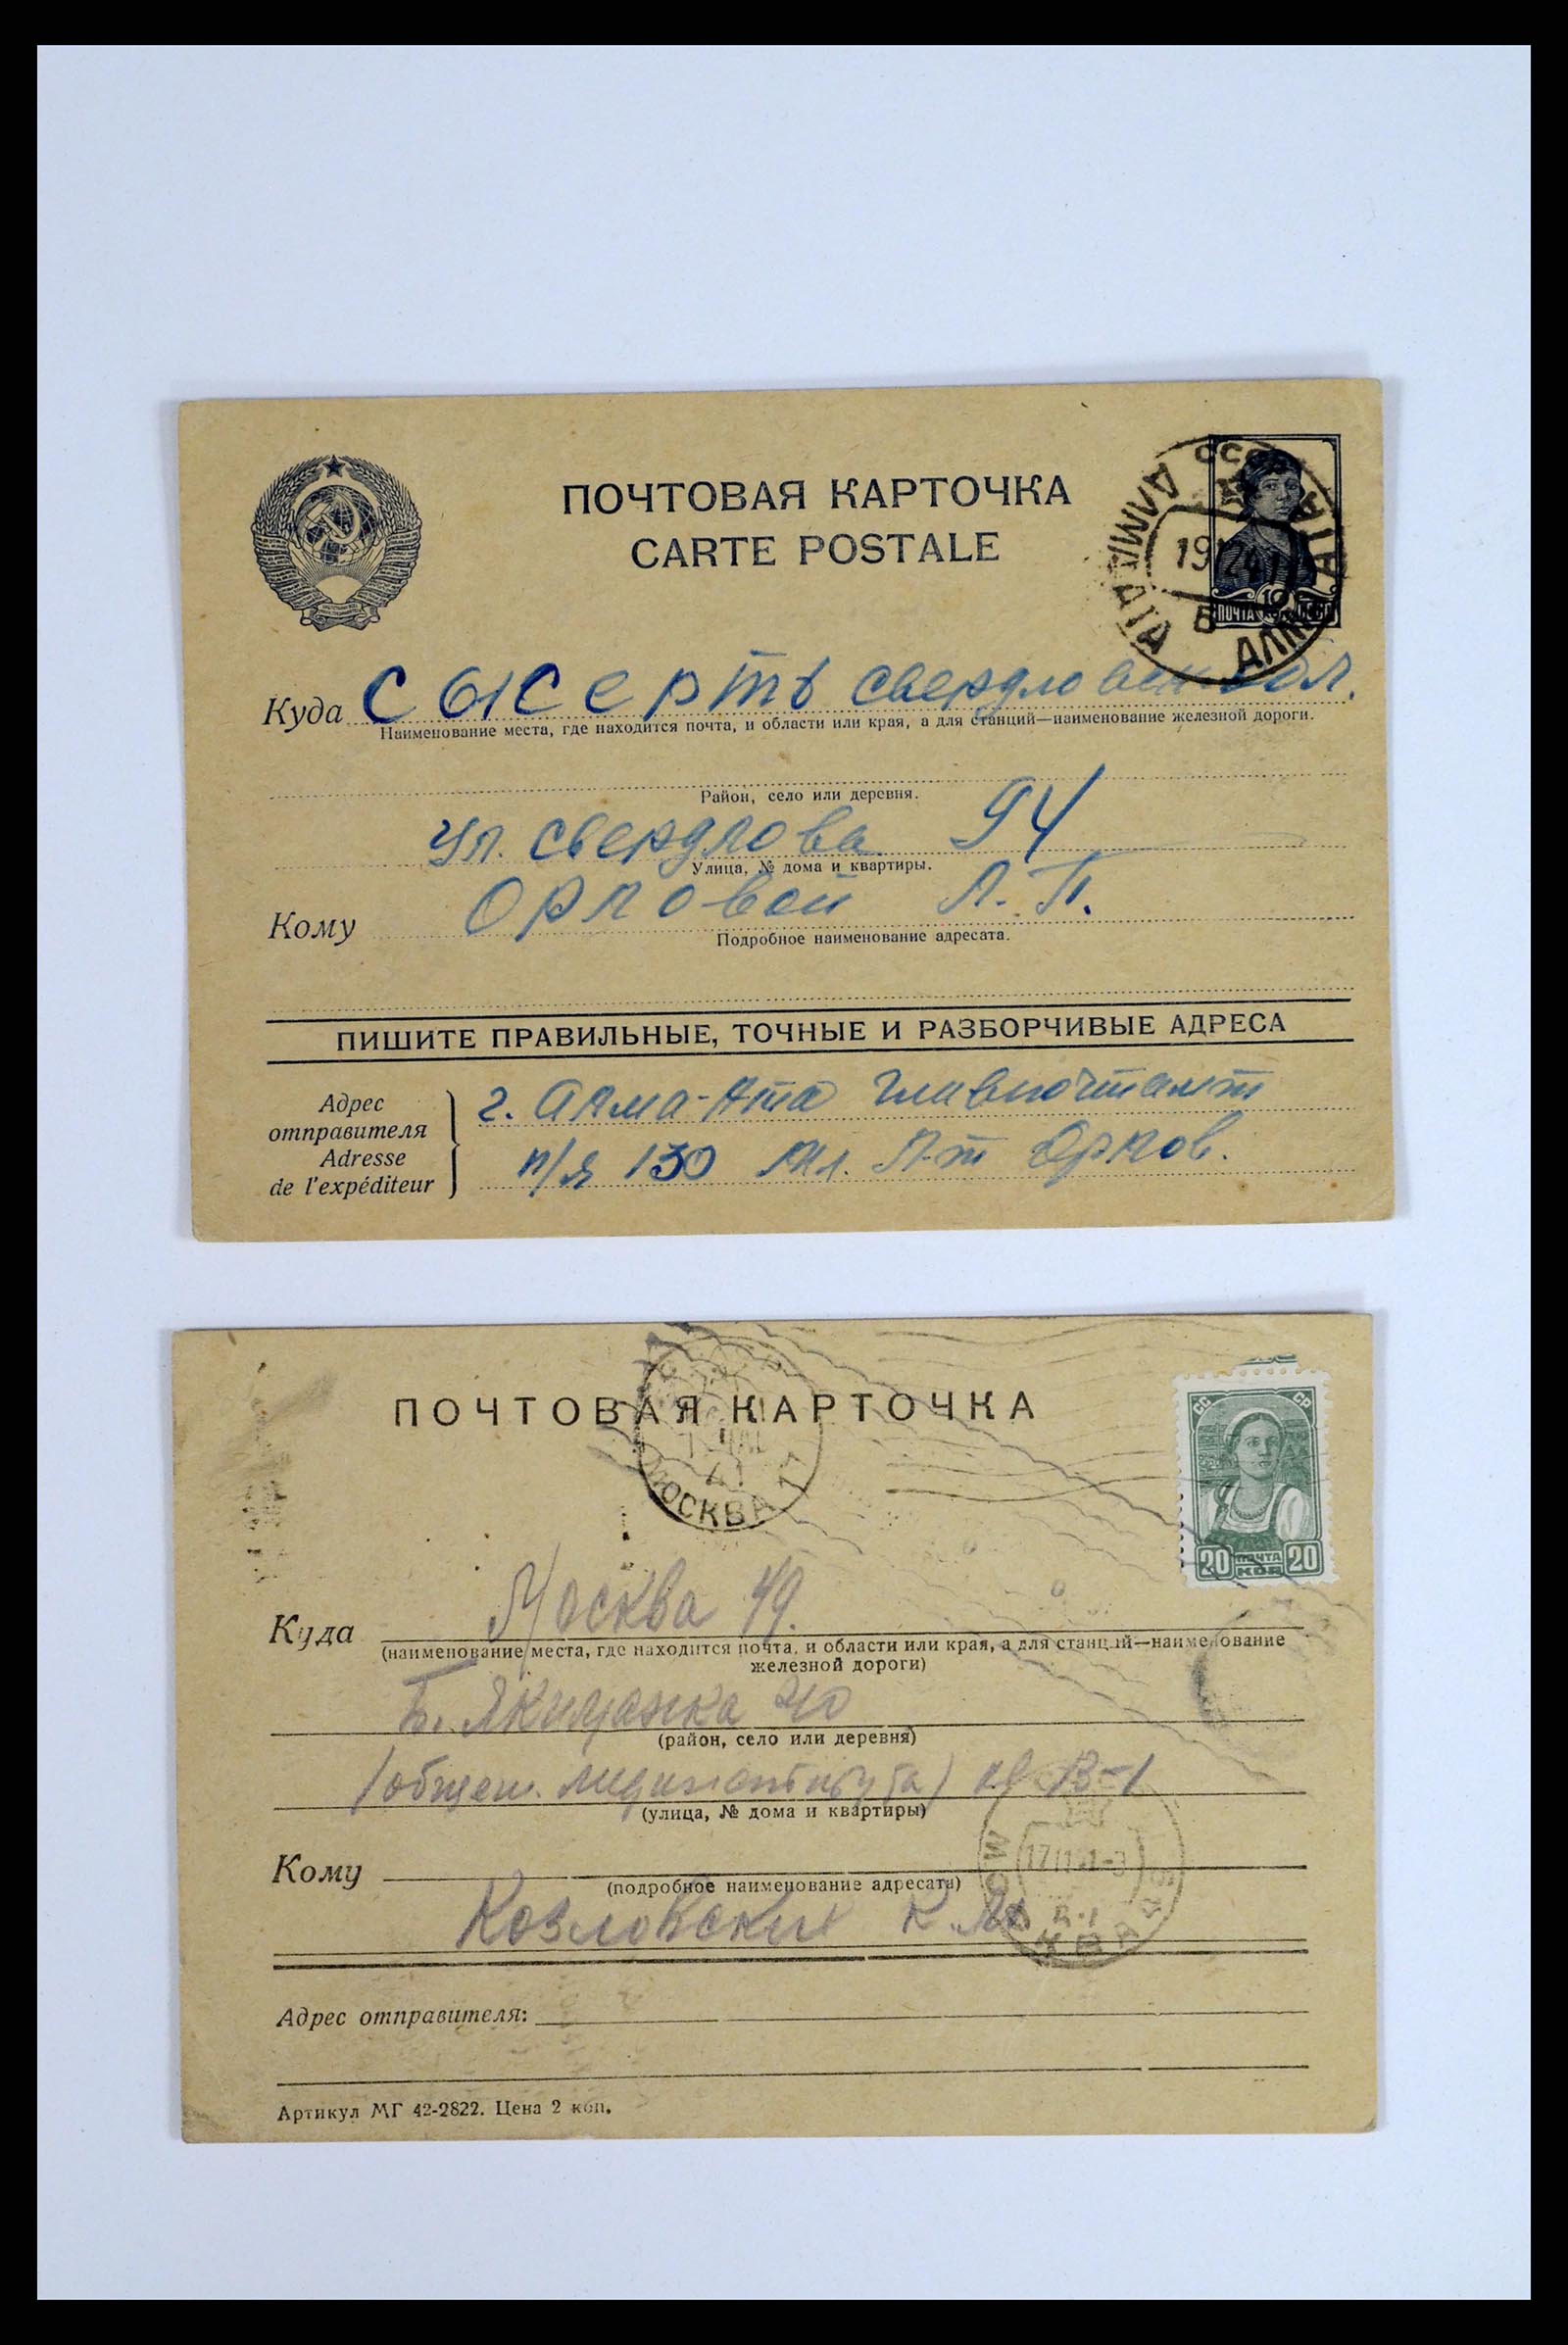 ПОЧТОВАЯ КАРТОЧКА
CARTE POSTALE
СССР
АЛМА АТА
АЛМА АТА
19
ПОЧТА
Куда Сысерть Свердловск обл.
Наименование места, где находится почта, и области или края, а для станций—наименование железной дороги.
Район, село или деревня.
Ул. Свердлова 94
Улица, № дома и квартиры.
Кому Орловой Л. П.
Подробное наименование адресата.
ПИШИТЕ ПРАВИЛЬНЫЕ, ТОЧНЫЕ И РАЗБОРЧИВЫЕ АДРЕСА
Адрес отправителя
Adresse de l'expéditeur
г. Алма-Ата Главпочтамт
п/я 130 Мл. Л-т Орлов.
ПОЧТОВАЯ КАРТОЧКА
МОСКВА
41
СС СР
20 ПОЧТА КОП 20
Куда Москва 49.
(наименование места, где находится почта, и области или края, а для станций—наименование
железной дороги)
Б. Якиманка 40
(район, село или деревня)
(общеж. мединститута) кв В-1
(улица, № дома и квартиры)
Кому
(подробное наименование адресата)
Козловских К.
Адрес отправителя:
Артикул МГ 42-2822. Цена 2 коп.